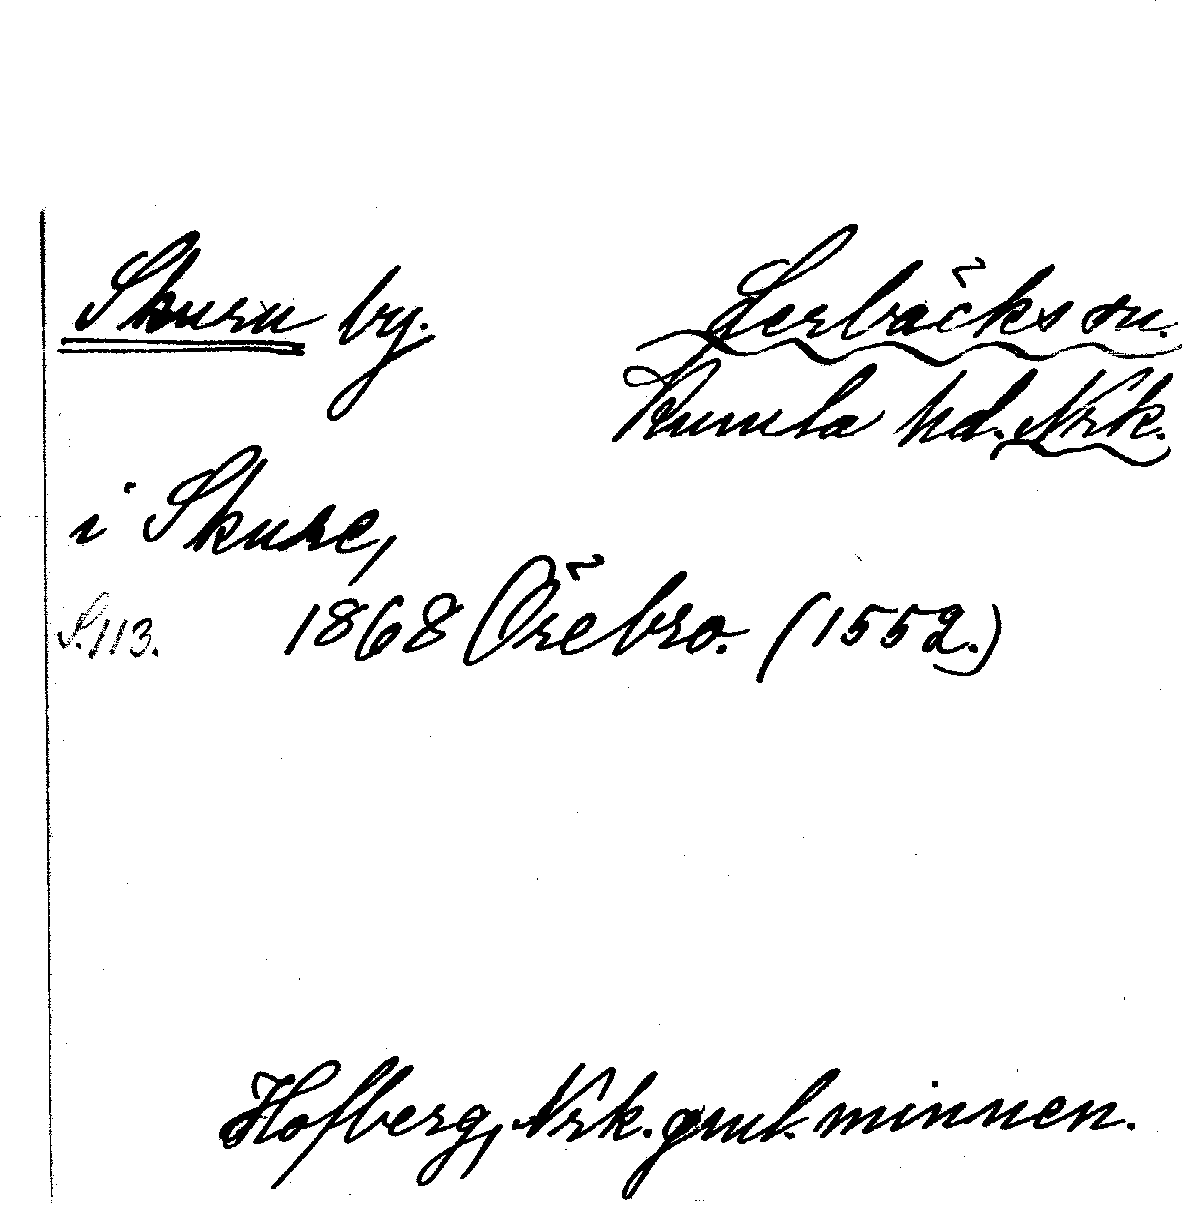 Skuru by. Lerbäcks sn.
Kumla hd. Nrk.
i Skure,
S. 113. 1868 Örebro. (1552.)
Hofberg, Nrk. gml. minnen.